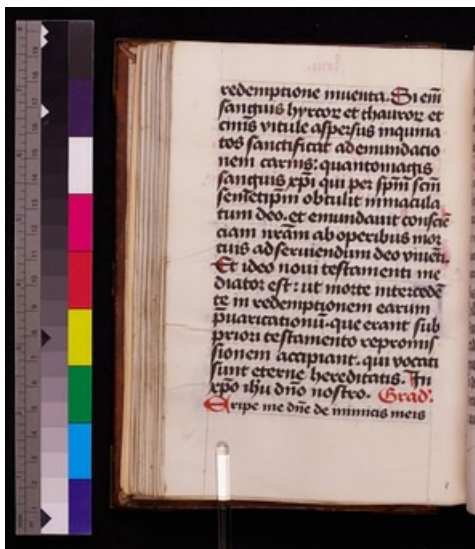 redemptione inuenta. Si em̄
sanguis hyrcoꝝ et thauroꝝ et
cinis vitule aspersus inquina
tos sanctificat ad emundacio
nem carnis: quantomagis
sanguis xp̄i qui per sp̄m̄ sc̄m̄
semetip̄m̄ obtulit inmacula
tum deo. et emundauit consciē
ciam nr̄am ab operibus mor
tuis ad seruiendum deo viuēti.
Et ideo noui testamenti me
diator est: ut morte intercedē
te in redemptionem earum
p̄uaricationū. que erant sub
priori testamento repromis
sionem accipiant. qui vocati
sunt eterne hereditatis. In
xp̄o ih̄u dn̄o nostro. Grad'.
Eripe me dn̄e de inimicis meis